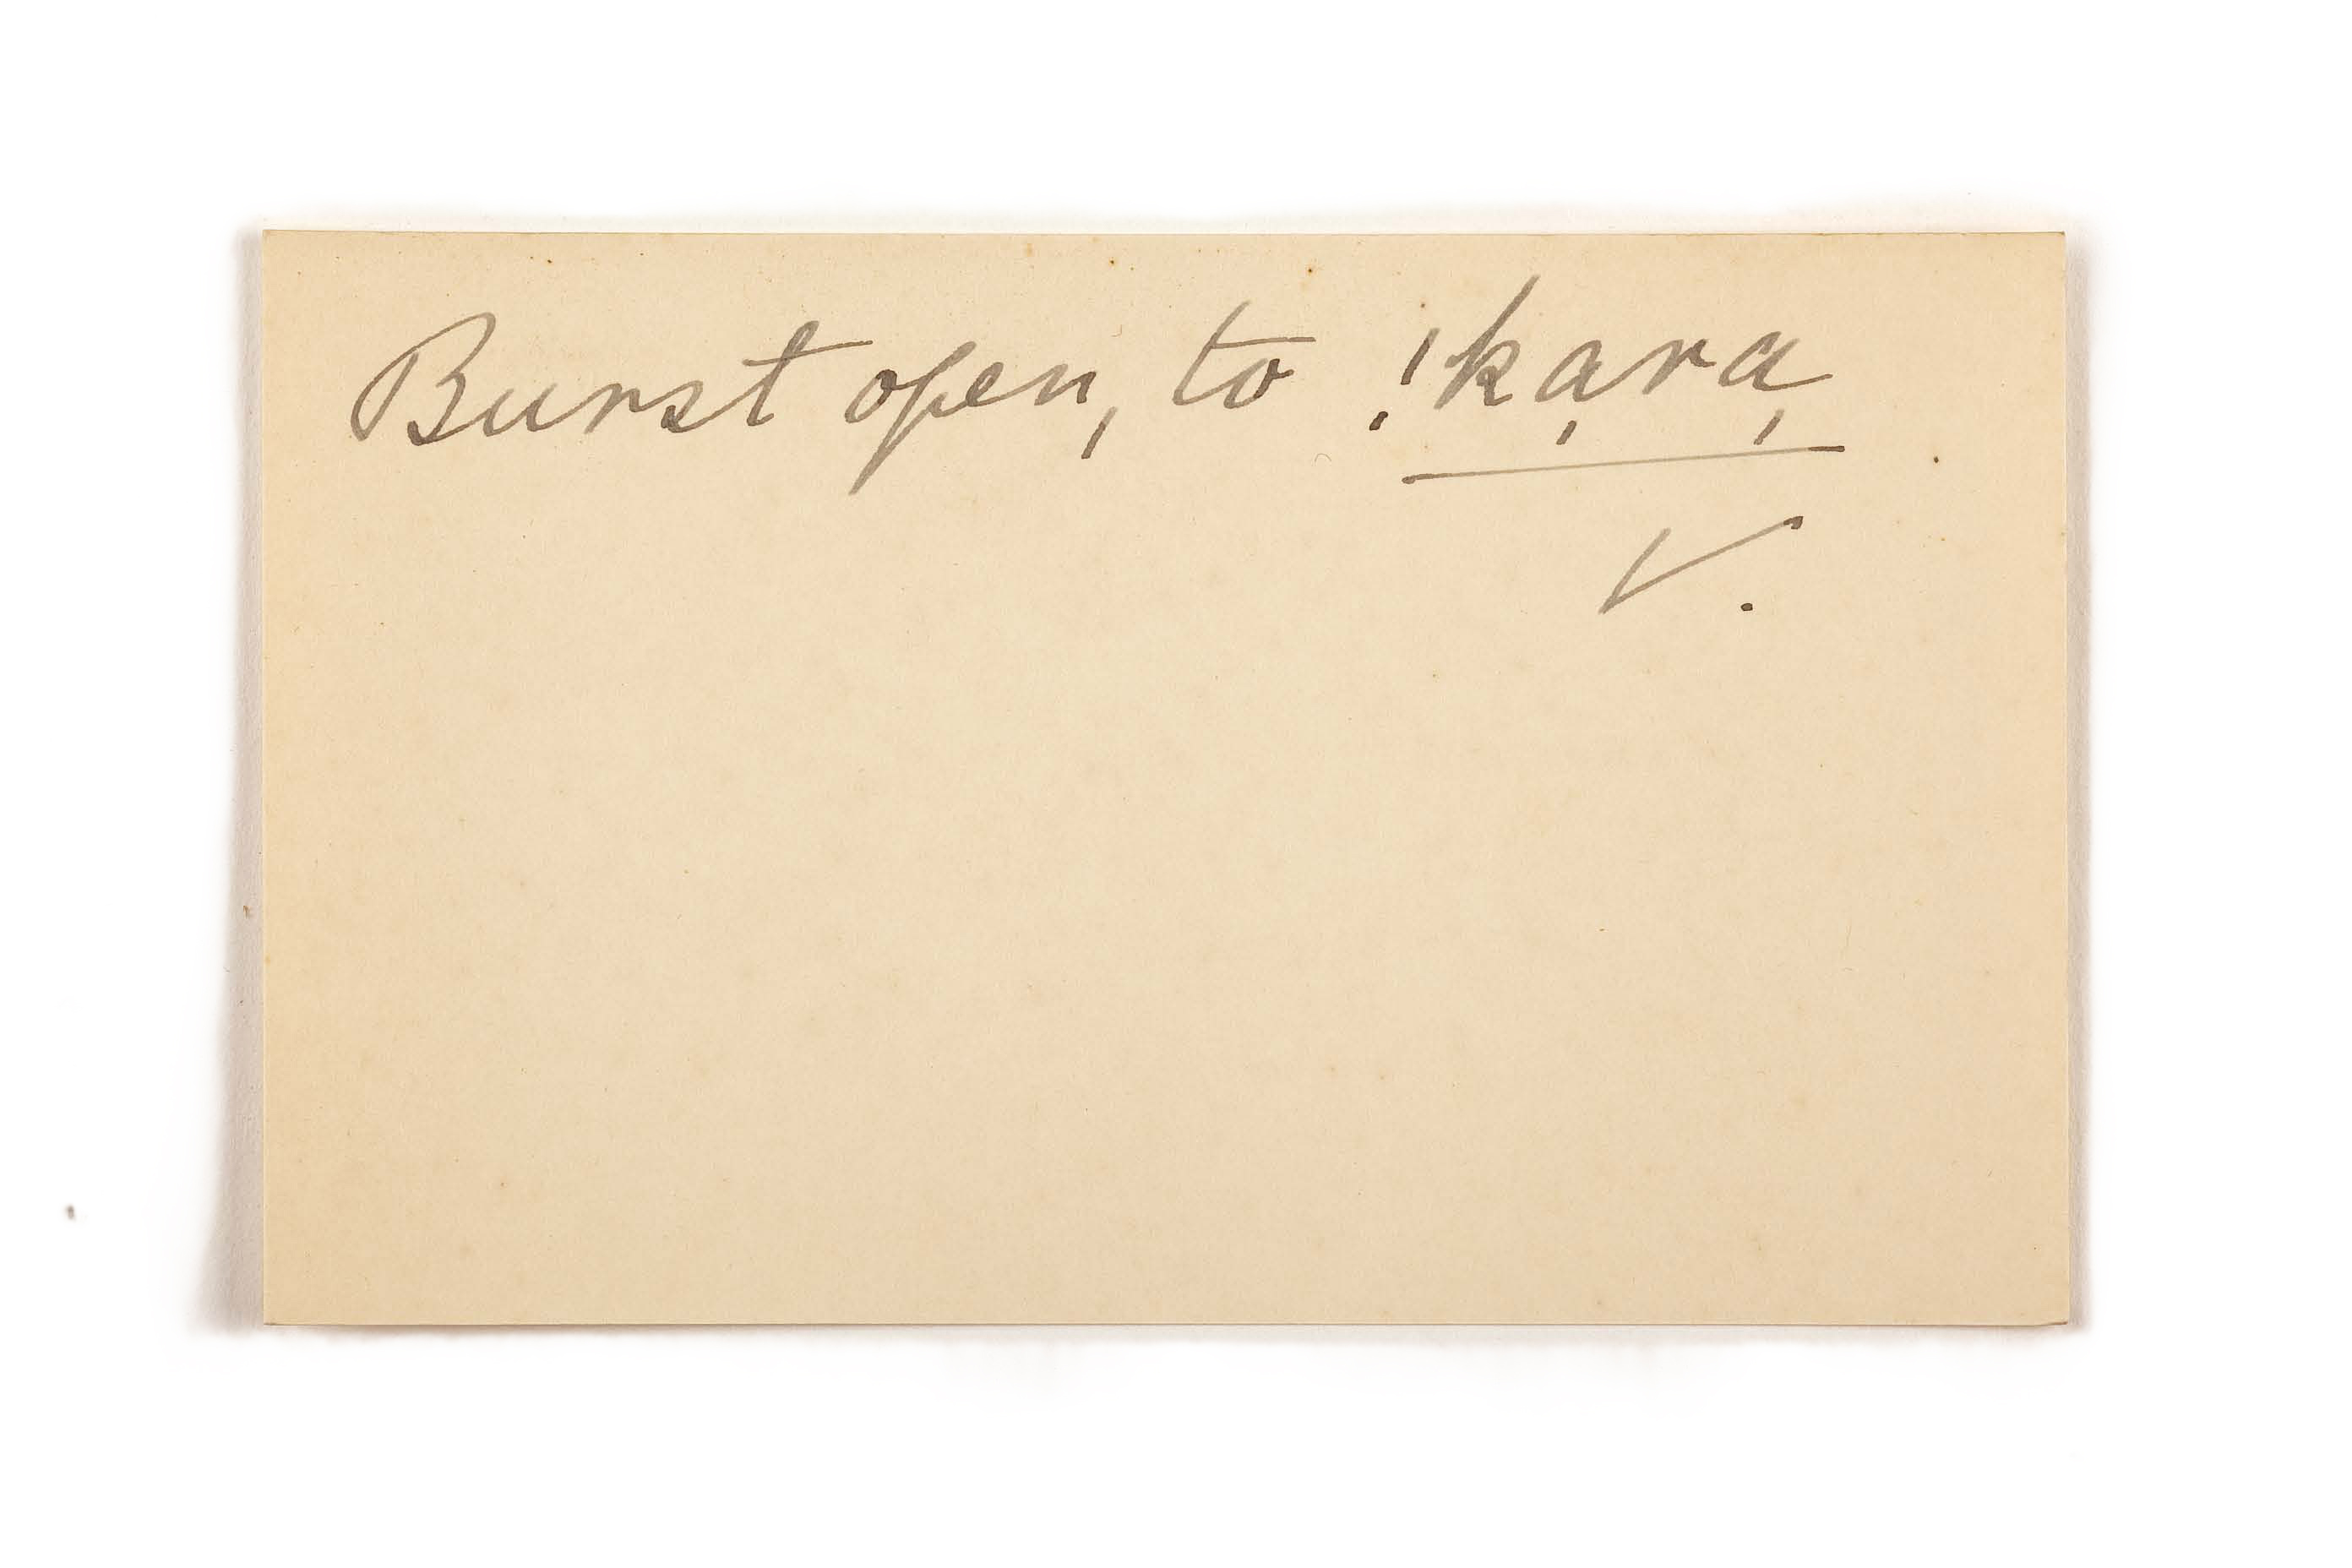 Burst open, to !ka̦ra̦
V.